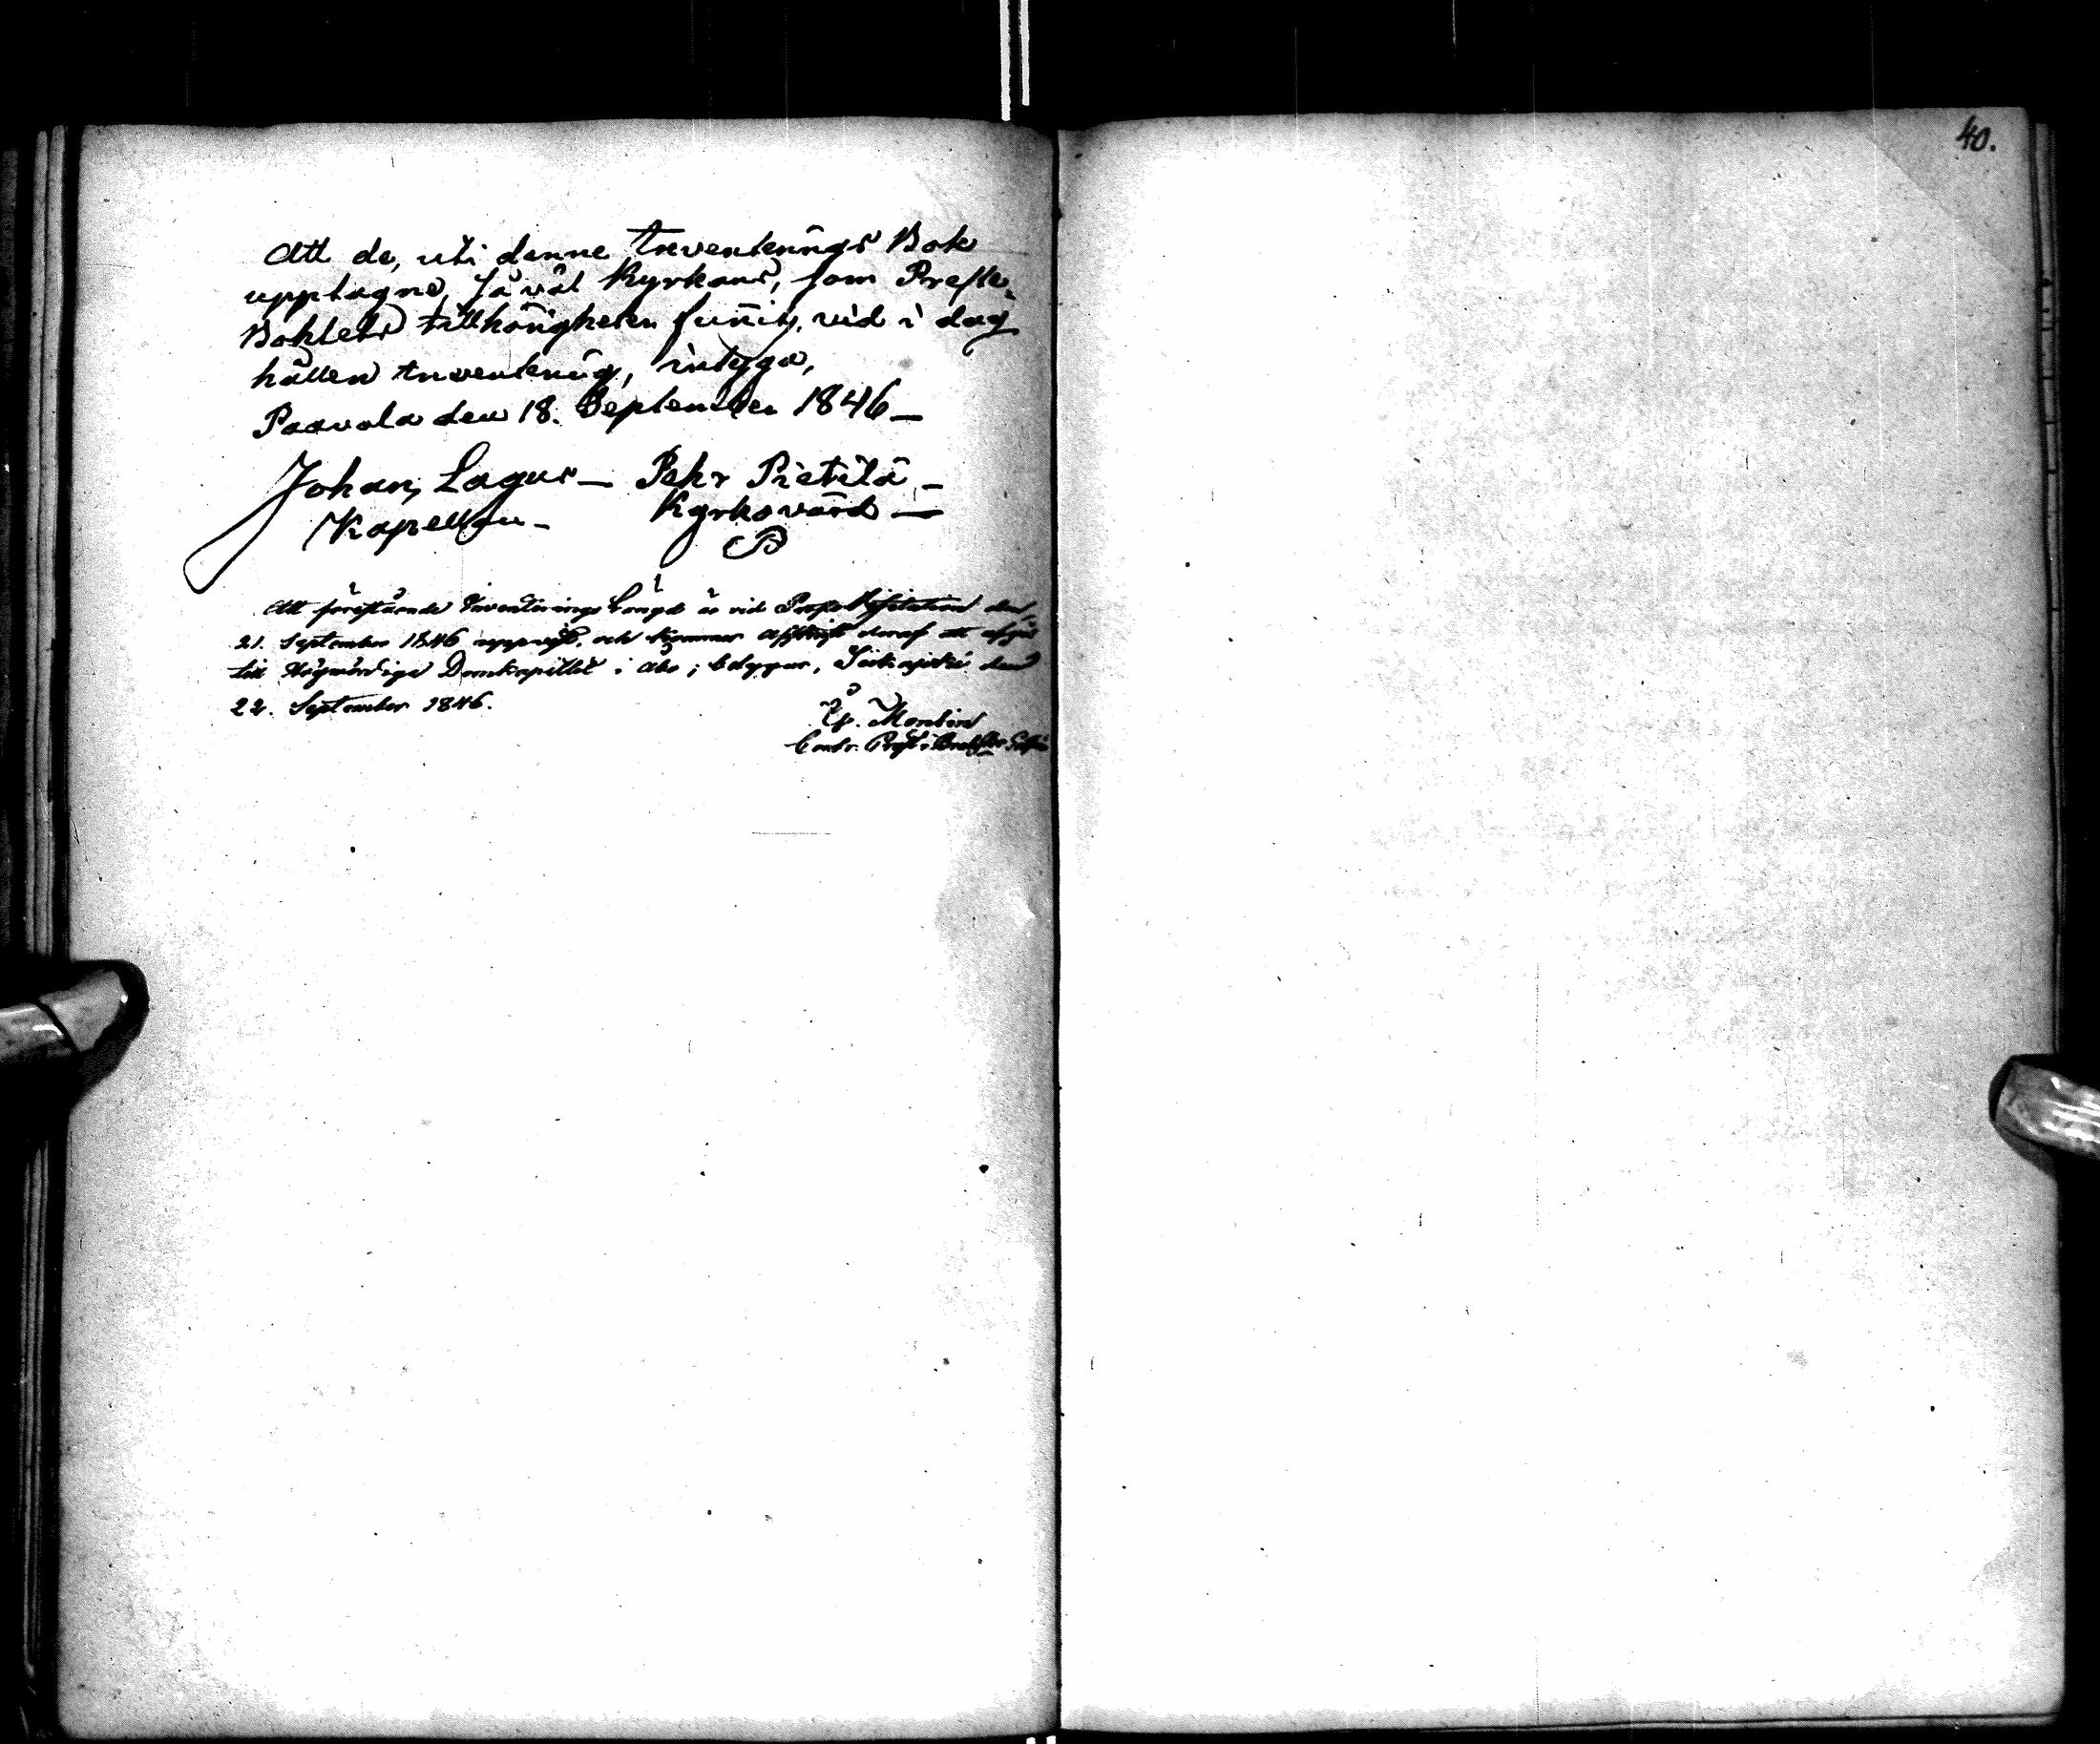 Att de, uti denne Inventerings Bok
upptagne, så väl Kyrkans, som Preste-
Bohlets tillhörigheter funnits, vid i dag
hållen Inventering, intyga,
Paavola den 18. September 1846 —
Johan Lagus — Pehr Pietilä —
Kapellan — Kyrkovärd —
P
Att förestående Inventerings Längd är vid Prosts Visitation den
21. September 1846 uppvist, och kommer afskrift deraf att afgå
till Högvördiga Domkapitlet i Åbo; betygar, Siikajoki den
22. September 1846.
Montin
Contr. Prost
40.